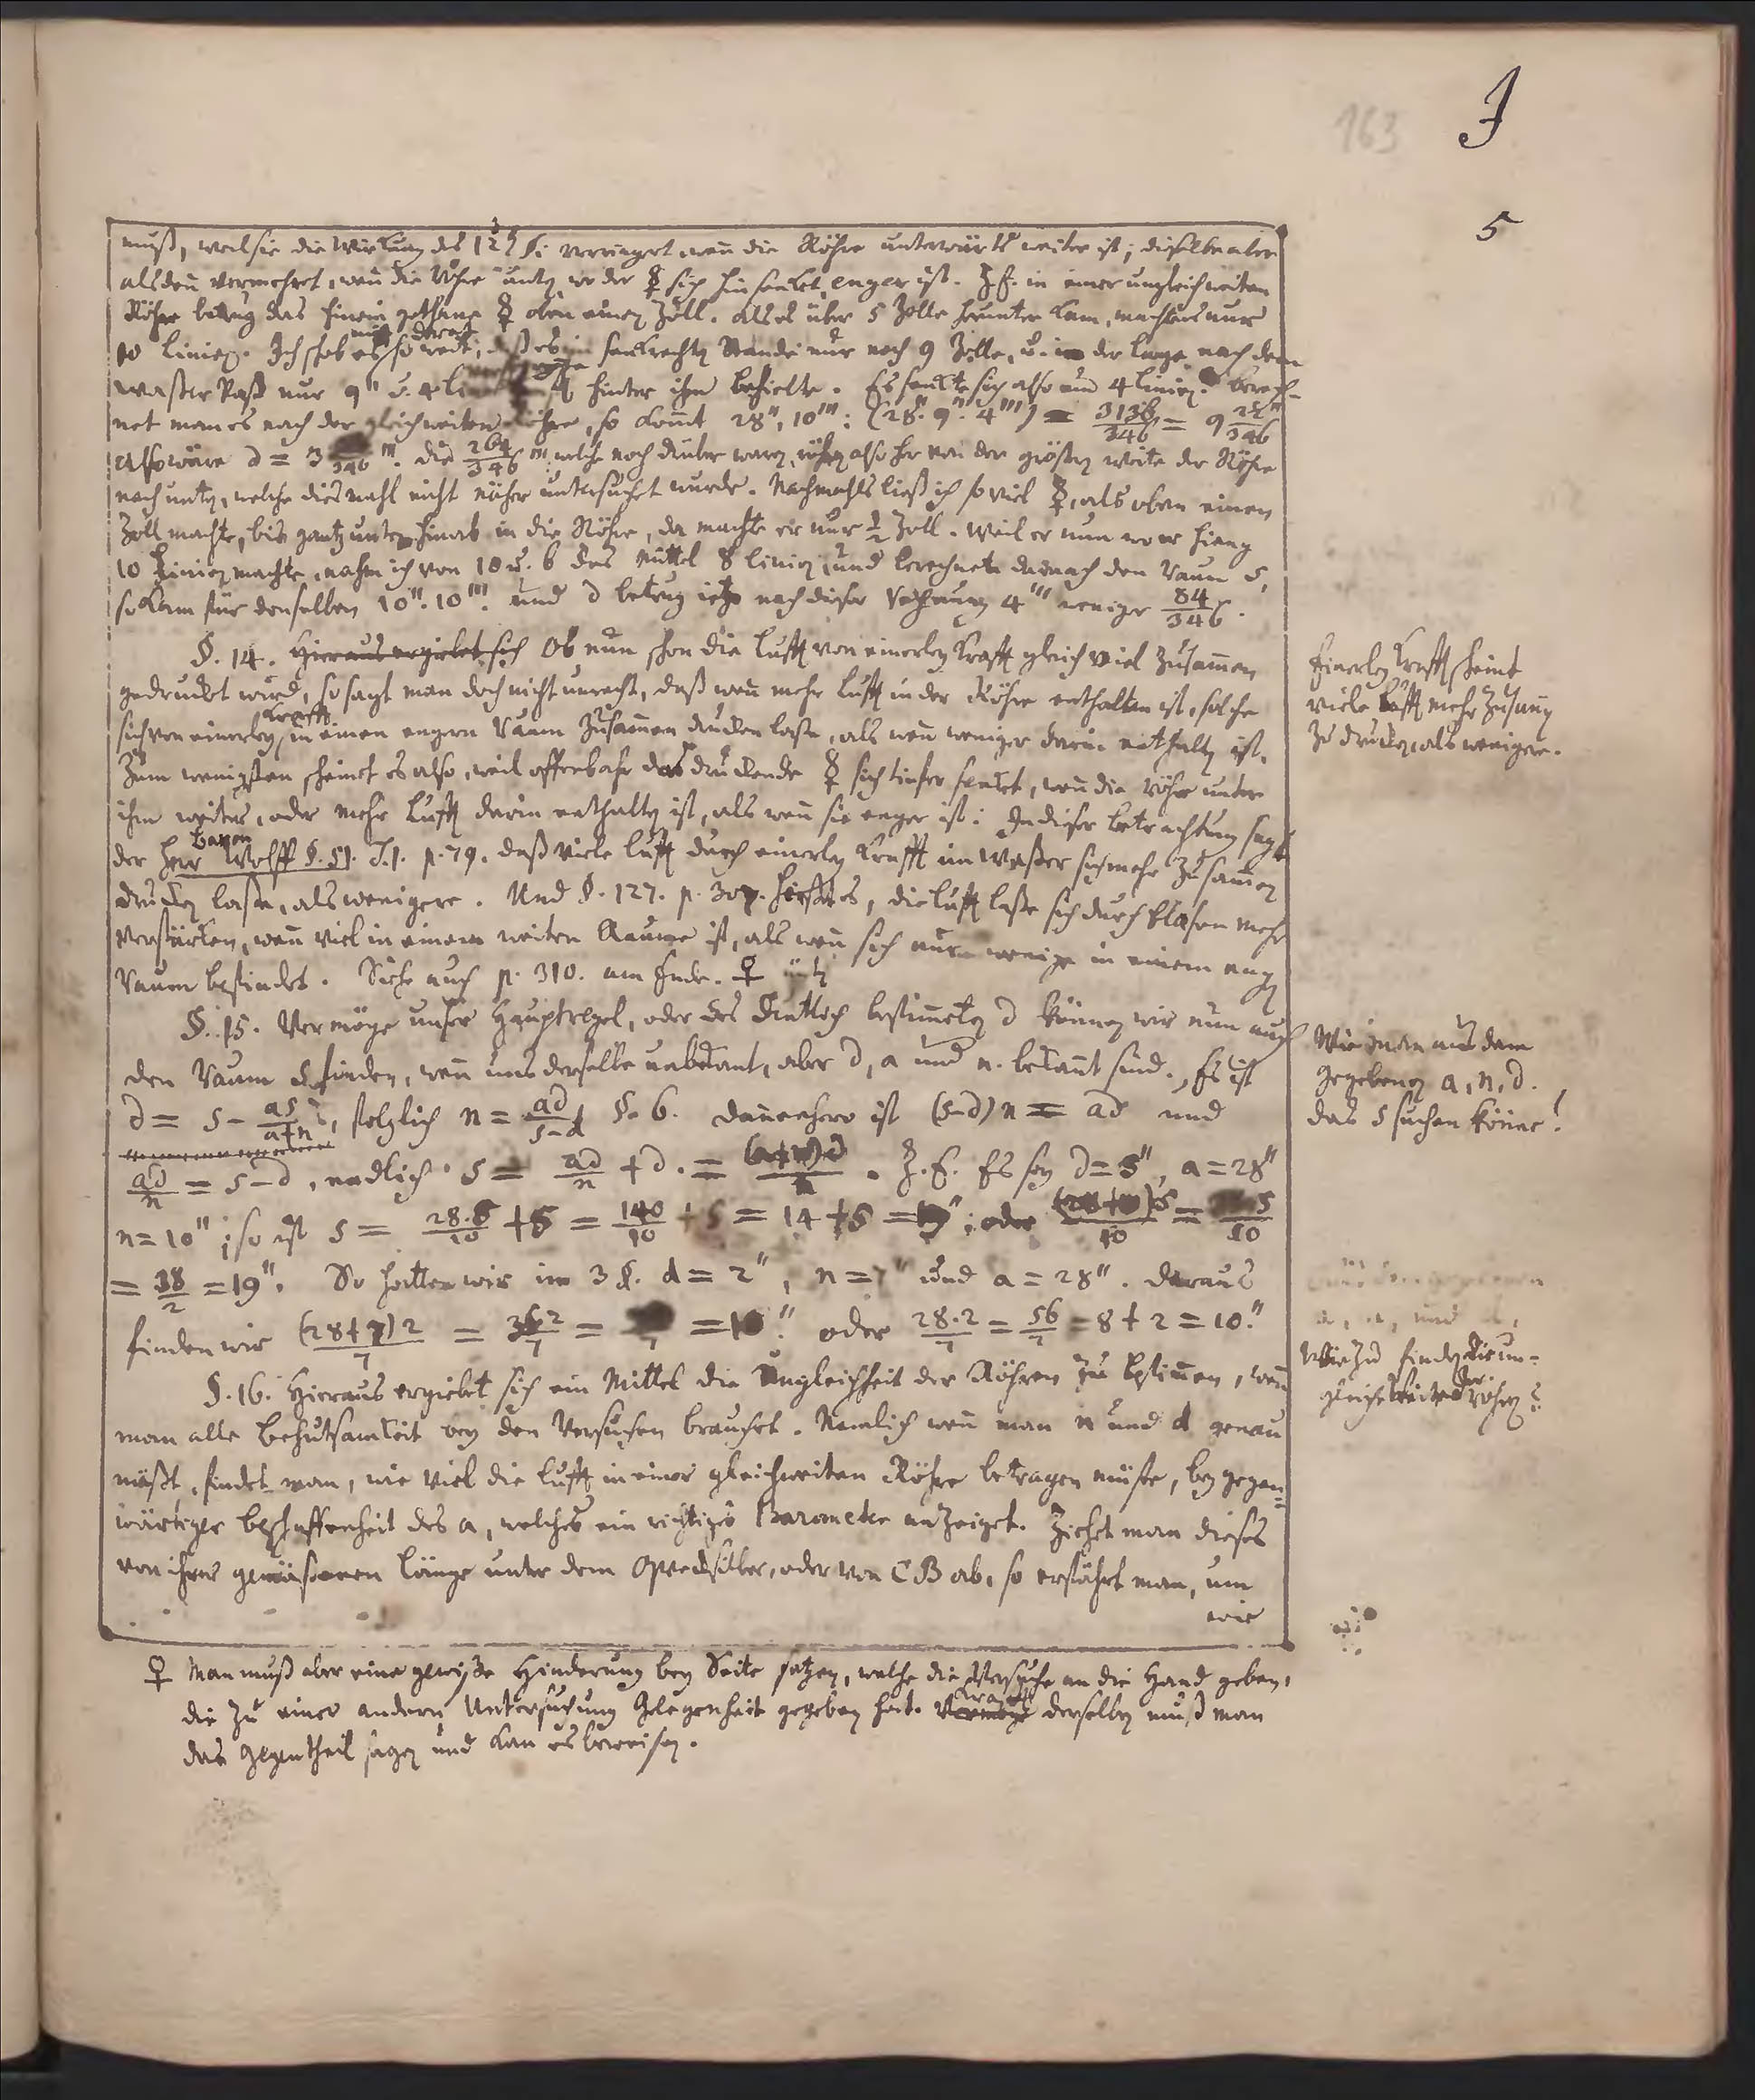 163
J
5
muß, weil sie die Würkung des ☿ verringert wenn die Röhre unterwärts weiter ist; dieselbe aber
alsdenn vermehret, wenn die Röhre unten, wo der ☿ sich hin senket, enger ist. Z. E. in einer ungleich weiten
Röhre betrug das hinein gethane ☿ oben einen Zoll. Als es über 5 Zolle herunter kam, machte es nur
10 Linien. Ich schob es so weit, daß es in senkrechten Stande nur noch 9 Zolle, u. in der Lage nach dem
Waßer Paß nur 9" u. 4 hinter ihm behielte. Es senckte sich also um 4 Linien. Berech-
net man es nach der gleichweiten Röhre, so komt 28", 10"': (28". 9". 4"') = 3136/346 = 9 22/346"'
Also wäre d = 3 /346"'. Die 264/346"' welche noch drüber waren, rühren also her von der größern Weite der Röhre
nach unten, welche dies mahl nicht näher untersuchet wurde. Nachmahls ließ ich so viel ☿, als oben einen
Zoll machte, bis gantz unten hinab in die Röhre, da machte er nur 1/2 Zoll. Weil er nun wo er hieng
10 Linien machte, nahm ich von 10 u. 6 das Mittel 8 Linien, und berechnete darnach den Raum s,
so kam für denselben 10". 10"'. und d betrug ietzo nach dieser Rechnung 4"' weniger 84/346.
§. 14. Hieraus ergiebet sich Ob nun schon die Lufft von einerley Krafft gleich viel zusammen
gedruckt wird, so sagt man doch nicht unrecht, daß wenn mehr Lufft in der Röhre enthalten ist, solche
Krafft
sich von einerley in einen engern Raum zusammen drucken laße, als wenn weniger darin enthalten ist.
Zum wenigsten scheinet es also, weil offenbahr das druckende ☿ sich tiefer senckt, wenn die Röhre unter
ihm weiter, oder mehr Lufft darin enthalten ist, als wenn sie enger ist. In dieser Betrachtung sagt
Baron
der Herr Wolff §. 51. T. I. p. 79. daß viele Lufft durch einerley Krafft im Waßer sich mehr zusammen
drucken laße, als wenigere. Und §. 127. p. heißt es, die Lufft laße sich durch blasen mehr
verstärken, wenn viel in einem weiten Raume ist, als wenn sich nur wenige in einem engen
Raum befindet. Siehe auch p. 310. am Ende. ♀
§. 15. Vermöge unsrer Hauptregel, oder des deutlich bestimmeten d können wir nun auch
den Raum s finden, wenn uns derselbe unbekant, aber d, a und n. bekannt sind. Es ist
d = s - as/a+n, folglich n = ad/s-d §. 6. Dannenhero ist (s-d) n = ad und
ad/n = s-d, endlich s = ad/n + d. = (a+n)d/n. Z. E. Es sey d = 5", a = 28"
n = 10"; so ist s = 28.5/10 + 5 = 140/10 + 5 = 14 + 5 = 19"; oder (28+10)5/10 = 5/10
= 38/2 = 19". So hatten wir im 3 §. d = 2", n = 7" und a = 28". Daraus
finden wir (28+7)2/7 = /7 = /7 = 10." oder 28.2/7 = 56/7 = 8 + 2 = 10."
§. 16. Hieraus ergiebet sich ein Mittel die Ungleichheit der Röhren zu bestimmen, wenn
man alle Behutsamkeit bey den Versuchen brauchet. Nemlich wenn man n und d genau
mäßt, findet man, wie viel die Lufft in einer gleichweiten Röhre betragen müße, bey gegen-
wärtiger Beschaffenheit des a, welches ein richtiges Barometer anzeiget. Ziehet man dieses
von ihrer gemäßenen Länge unter dem Quecksilber, oder von CB ab, so erfährt man, um
wie
♀ Man muß aber eine gewiße Hinderung bey Seite setzen, welche die Versuche an die Hand geben,
die zu einer andern Untersuchung Gelegenheit gegeben hat. derselben muß man
das Gegentheil sagen und kan es beweisen.
Einerley Krafft scheint
viele Lufft mehr zusamen
zu drucken, als wenigere.
Wie man aus dem
gegebenen a, n, d.
das s suchen könne?
Wie zu finden die un-
gleiche Weite der Röhren?